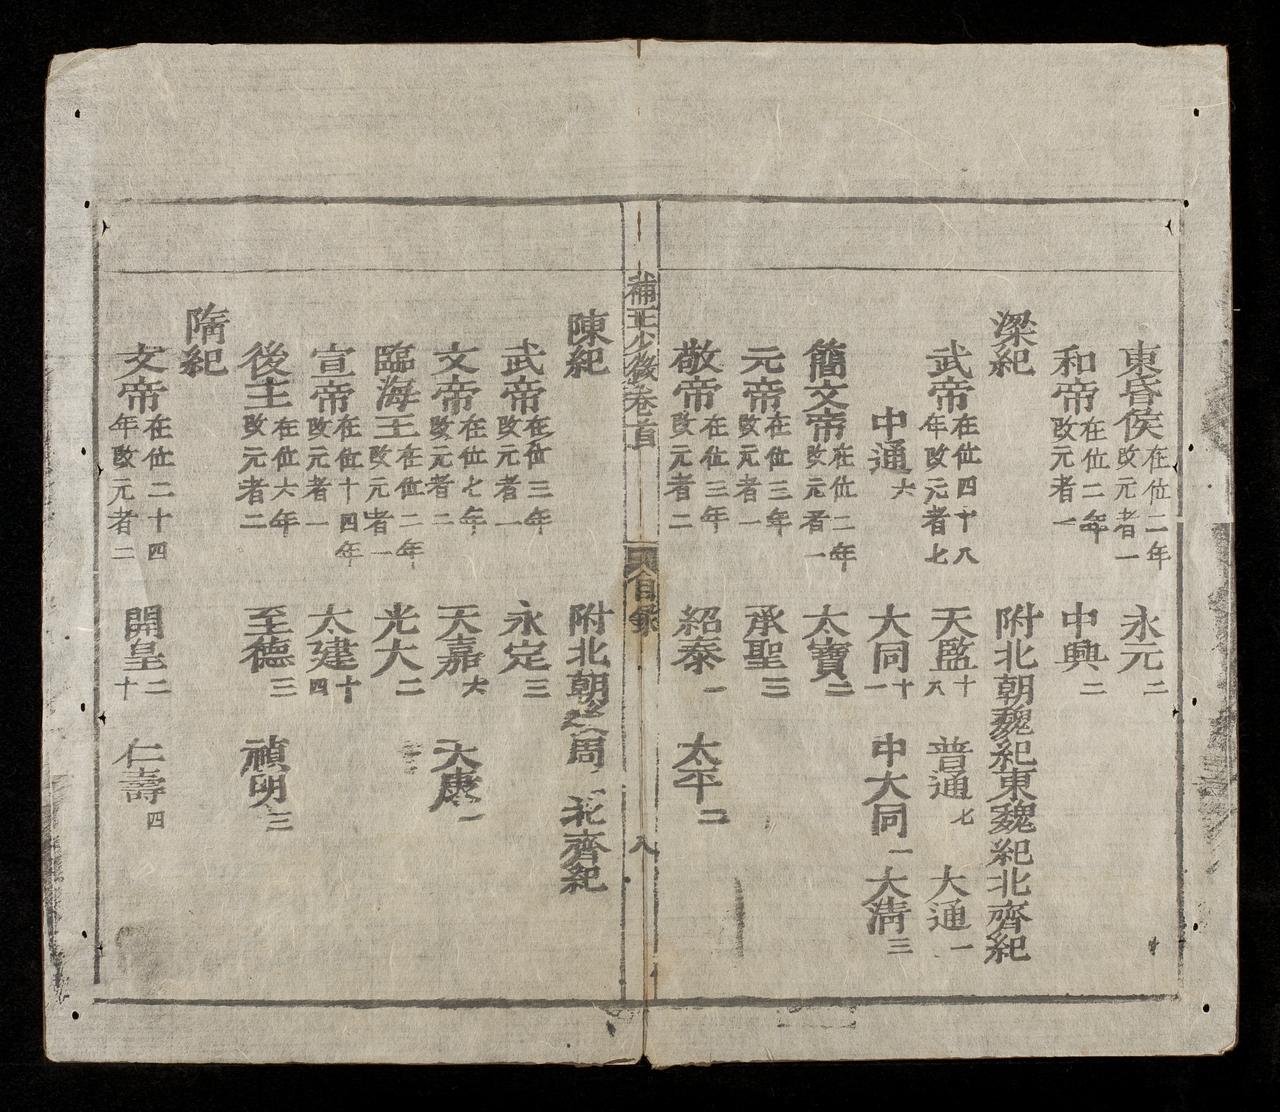 東昏侯在位二年改元者一 永元二
和帝在位二年改元者一 中興二
梁紀 附北朝魏紀東魏紀北齊紀
武帝在位四十八年改元者七 天監十八 普通七 大通一
中通六 大同十一 中大同一 大清三
簡文帝在位二年改元者一 太寶二
元帝在位三年改元者一 承聖三
敬帝在位三年改元者二 紹泰一 太平二
補正少微卷首 目錄 八
陳紀 附北朝之周 北齊紀
武帝在位三年改元者一 永定三
文帝在位七年改元者二 天嘉六 天康一
臨海王在位二年改元者一 光大二
宣帝在位十四年改元者一 太建十四
後主在位六年改元者二 至德三 禎明三
隋紀
文帝在位二十四年改元者二 開皇二十 仁壽四